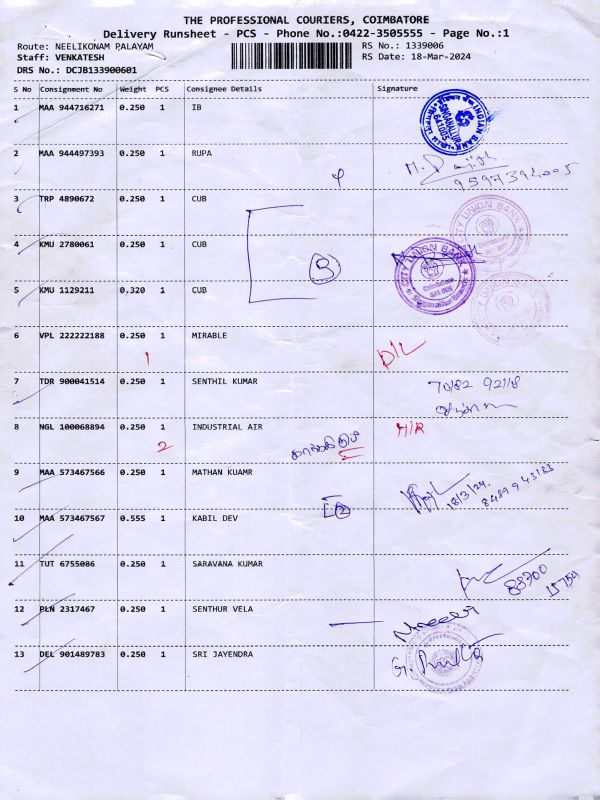 THE PROFESSIONAL COURIERS, COIMBATORE
Delivery Runsheet - PCS - Phone No.:0422-3505555 - Page No.:1
Route: NEELIKONAM PALAYAM RS No.: 1339006
Staff: VENKATESH RS Date: 18-Mar-2024
DRS No.: DCJB133900601
S No Consignment No Weight PCS Consignee Details Signature
1 MAA 944716271 0.250 1 IB
INDIAN BANK
2 MAA 944497393 0.250 1 RUPA
9597394005
3 TRP 4890672 0.250 1 CUB
CITY UNION BANK
4 KMU 2780061 0.250 1 CUB
3
CITY UNION BANK
Coimbatore
5 KMU 1129211 0,320 1 CUB
6 VPL 222222188 0.250 1 MIRABLE
1 D/L
7 TDR 900041514 0.250 1 SENTHIL KUMAR
8 NGL 100068894 0.250 1 INDUSTRIAL AIR
2 H/R
9 MAA 573467566 0.250 1 MATHAN KUAMR
18/3/24.
2
10 MAA 573467567 0.555 1 KABIL DEV
11 TUT 6755086 0.250 1 SARAVANA KUMAR
12 PLN 2317467 0.250 1 SENTHUR VELA
13 DEL 901489783 0.250 1 SRI JAYENDRA